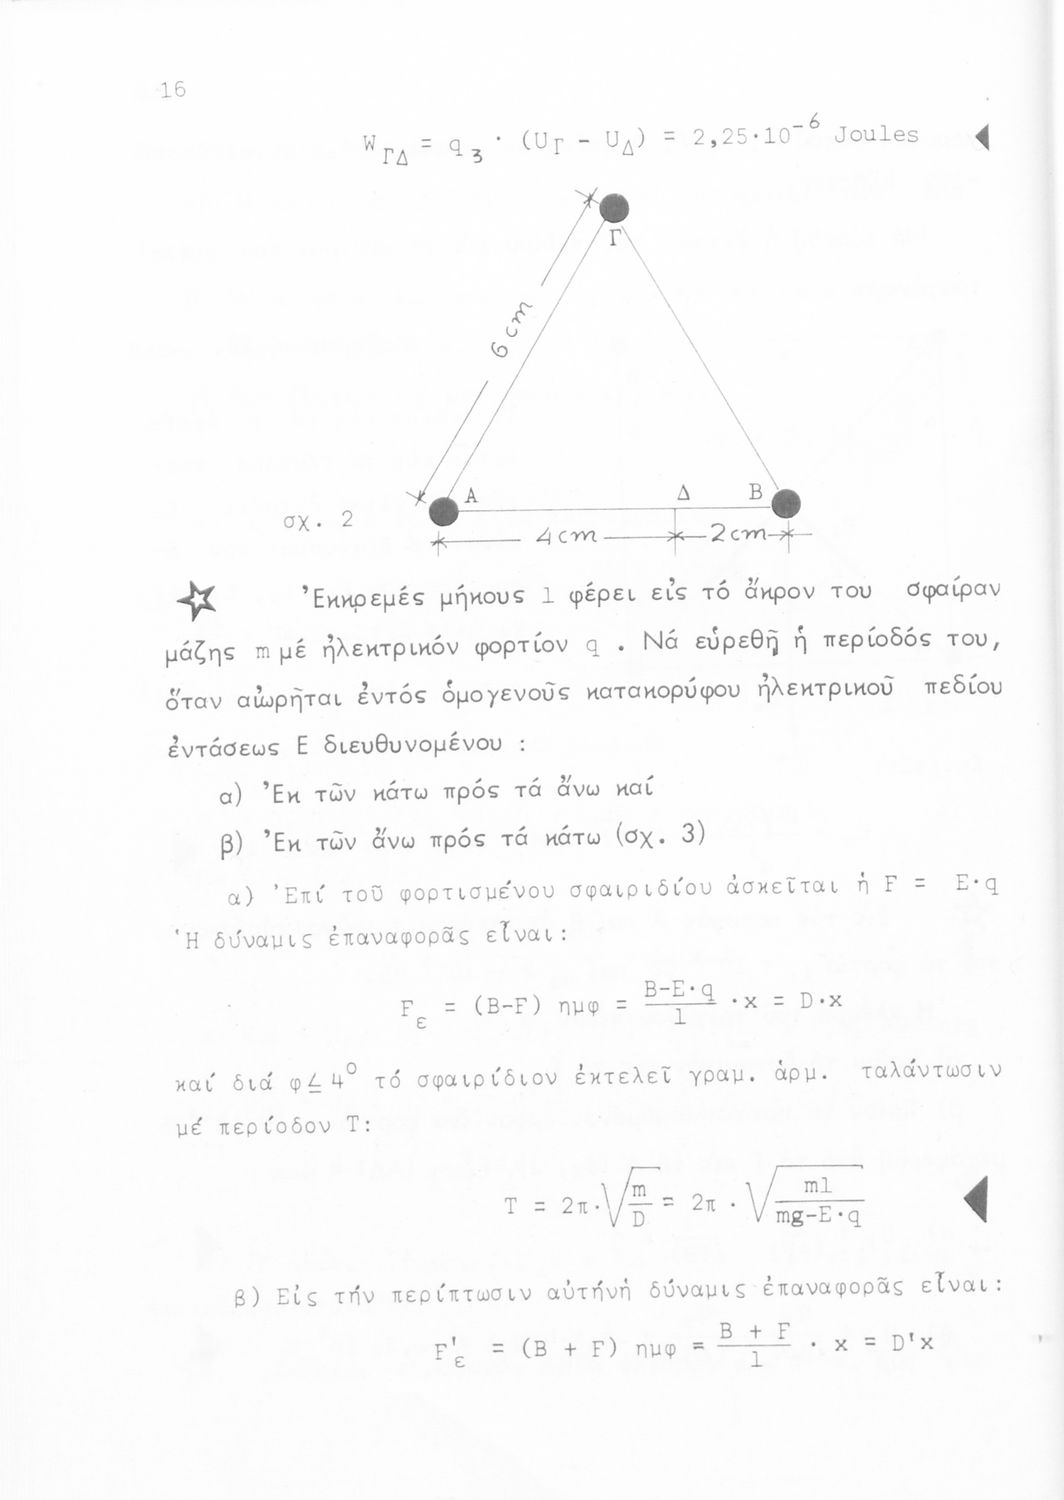 16
W ΓΔ = q 3 · (UΓ - UΔ) = 2,25·10⁻⁶ Joules
Γ
6 cm
Α Δ Β
σχ. 2
4 cm 2 cm
Ἐκκρεμές μήκους l φέρει εἰς τό ἄκρον του σφαίραν
μάζης m μέ ἠλεκτρικόν φορτίον q . Νά εὑρεθῇ ἡ περίοδός του,
ὅταν αἰωρῆται ἐντός ὁμογενοῦς κατακορύφου ἠλεκτρικοῦ πεδίου
ἐντάσεως Ε διευθυνομένου :
α) Ἐκ τῶν κάτω πρός τά ἄνω καί
β) Ἐκ τῶν ἄνω πρός τά κάτω (σχ. 3)
α) Ἐπί τοῦ φορτισμένου σφαιριδίου ἀσκεῖται ἡ F = E·q
Ἡ δύναμις ἐπαναφορᾶς εἶναι:
F ε = (B-F) ημφ = B-E·q / l ·x = D·x
καί διά φ≤4° τό σφαιρίδιον ἐκτελεῖ γραμ. ἁρμ. ταλάντωσιν
μέ περίοδον Τ:
T = 2π·√ m / D = 2π · √ ml / mg-E·q
β) Εἰς τήν περίπτωσιν αὐτήνἡ δύναμις ἐπαναφορᾶς εἶναι:
F' ε = (B + F) ημφ = B + F / l · x = D'x